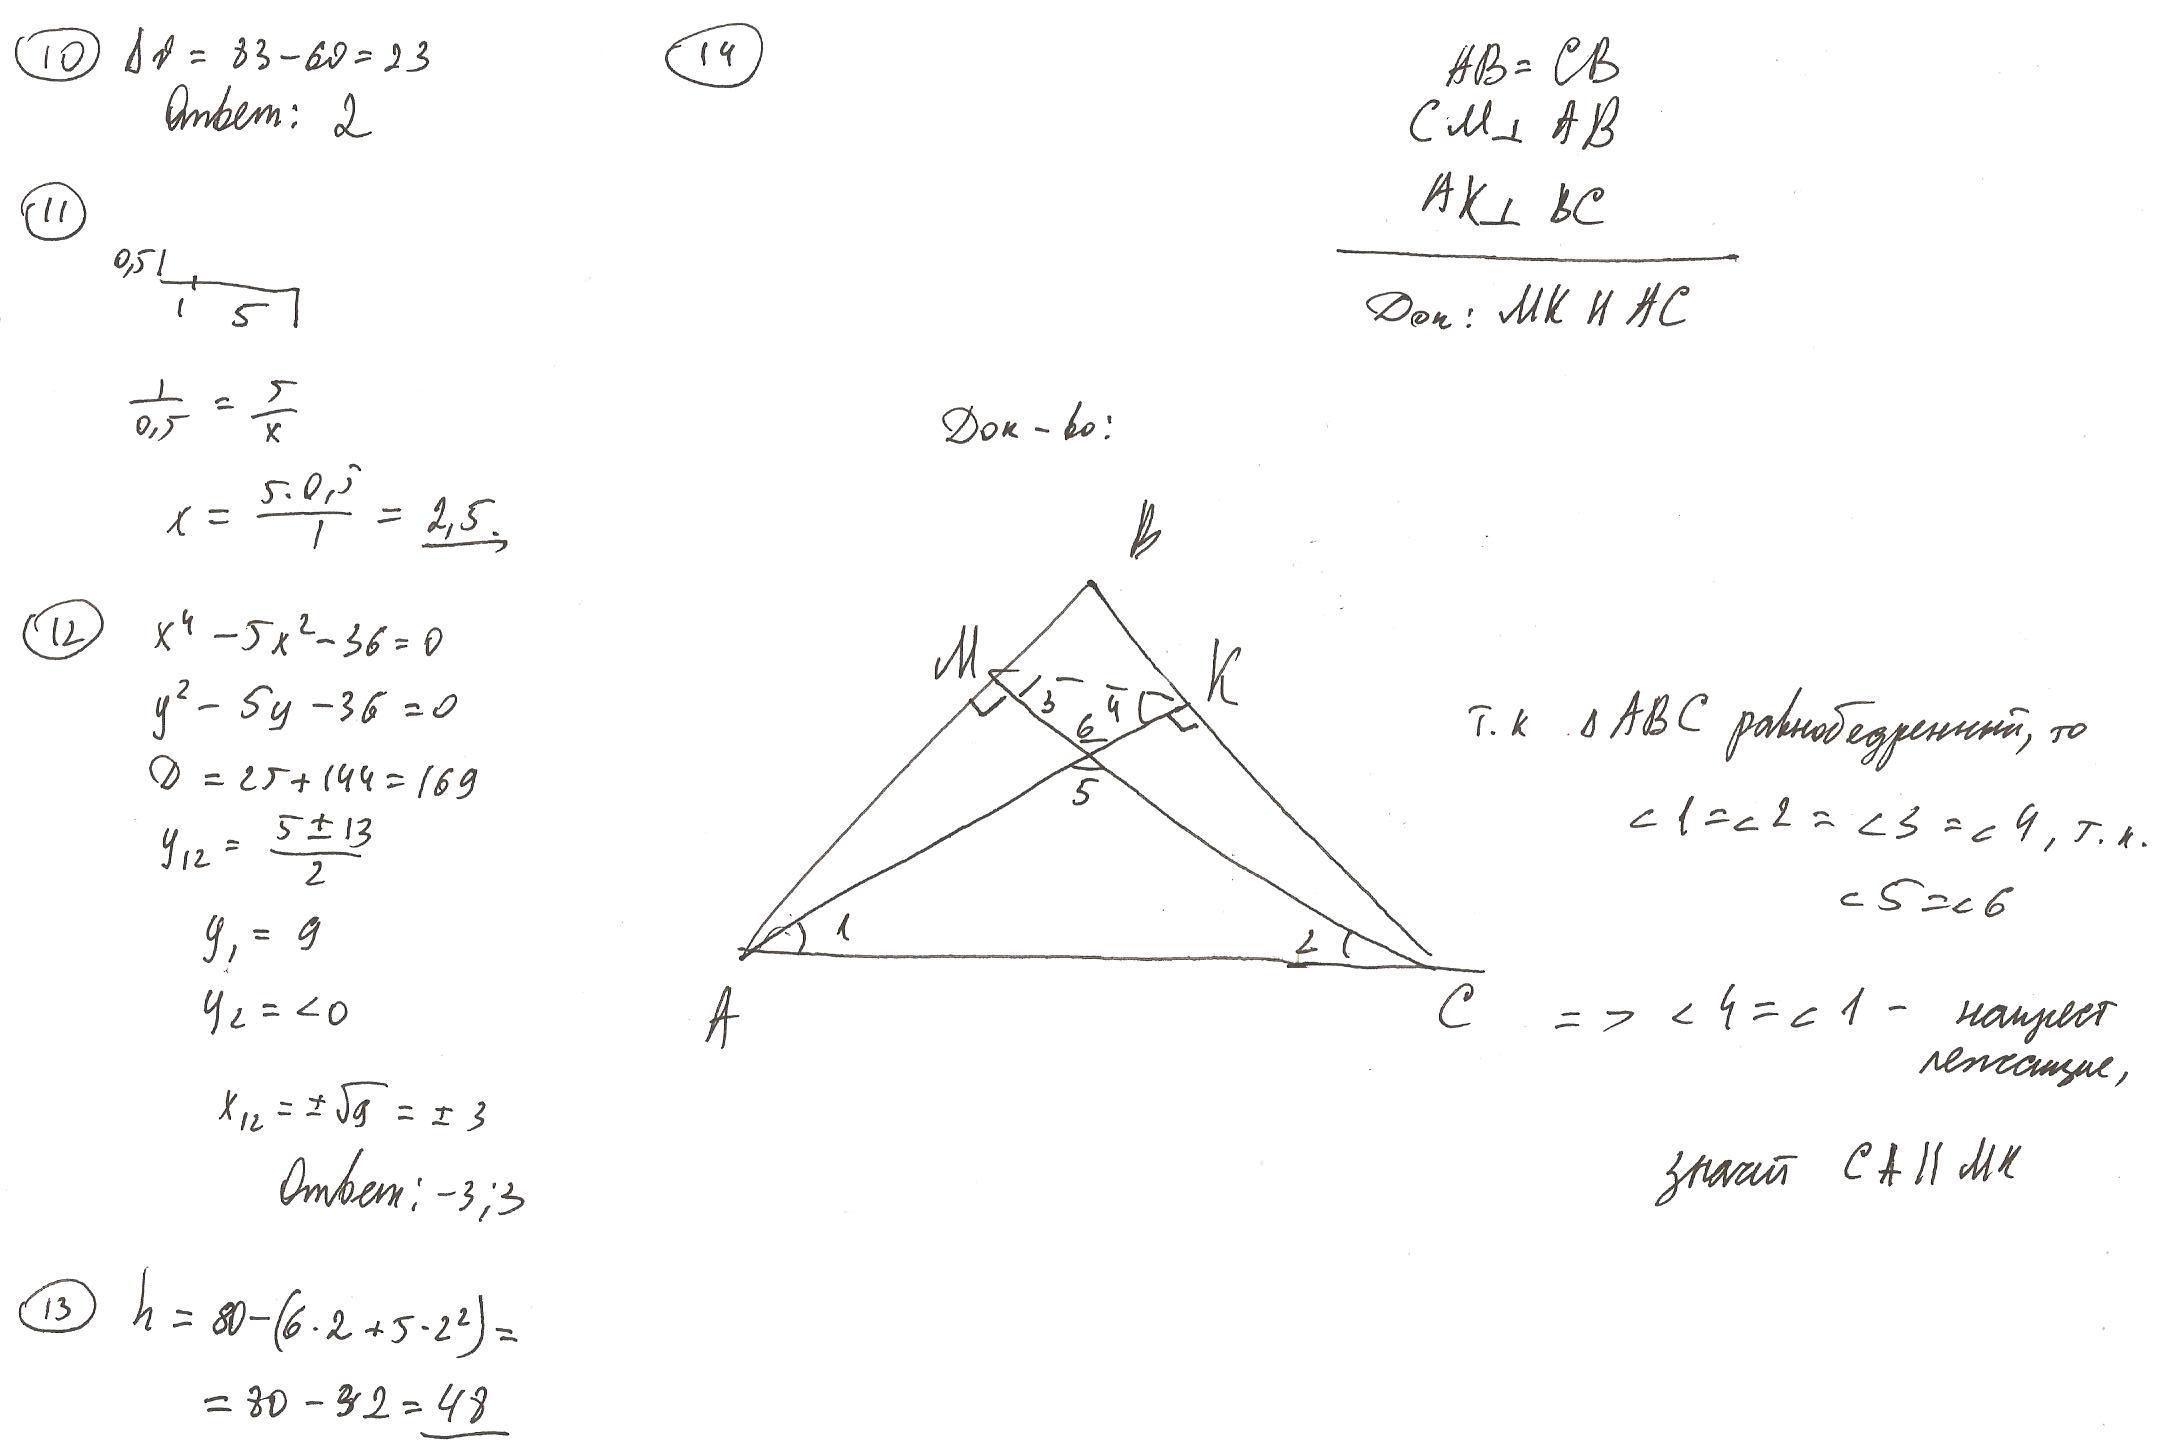 10 Δv = 83 - 60 = 23
Ответ: 2
11
0,5
1 5
1/0,5 = 5/x
x = 5·0,5/1 = 2,5.
12 x⁴ - 5x² - 36 = 0
y² - 5y - 36 = 0
D = 25 + 144 = 169
y₁₂ = 5 ± 13/2
y₁ = 9
y₂ = < 0
x₁₂ = ±√9 = ± 3
Ответ: -3; 3
13 h = 80 - (6·2 + 5·2²) =
= 80 - 32 = 48
14
AB = CB
CM ⊥ AB
AK ⊥ BC
Док: MK II AC
Док-во:
B
M K
3 4
6
5
1 2
A C
т.к Δ ABC равнобедренный, то
<1 = <2 = <3 = <4, т.к.
<5 = <6
=> <4 = <1 - накрест
лежащие,
значит CA || MK